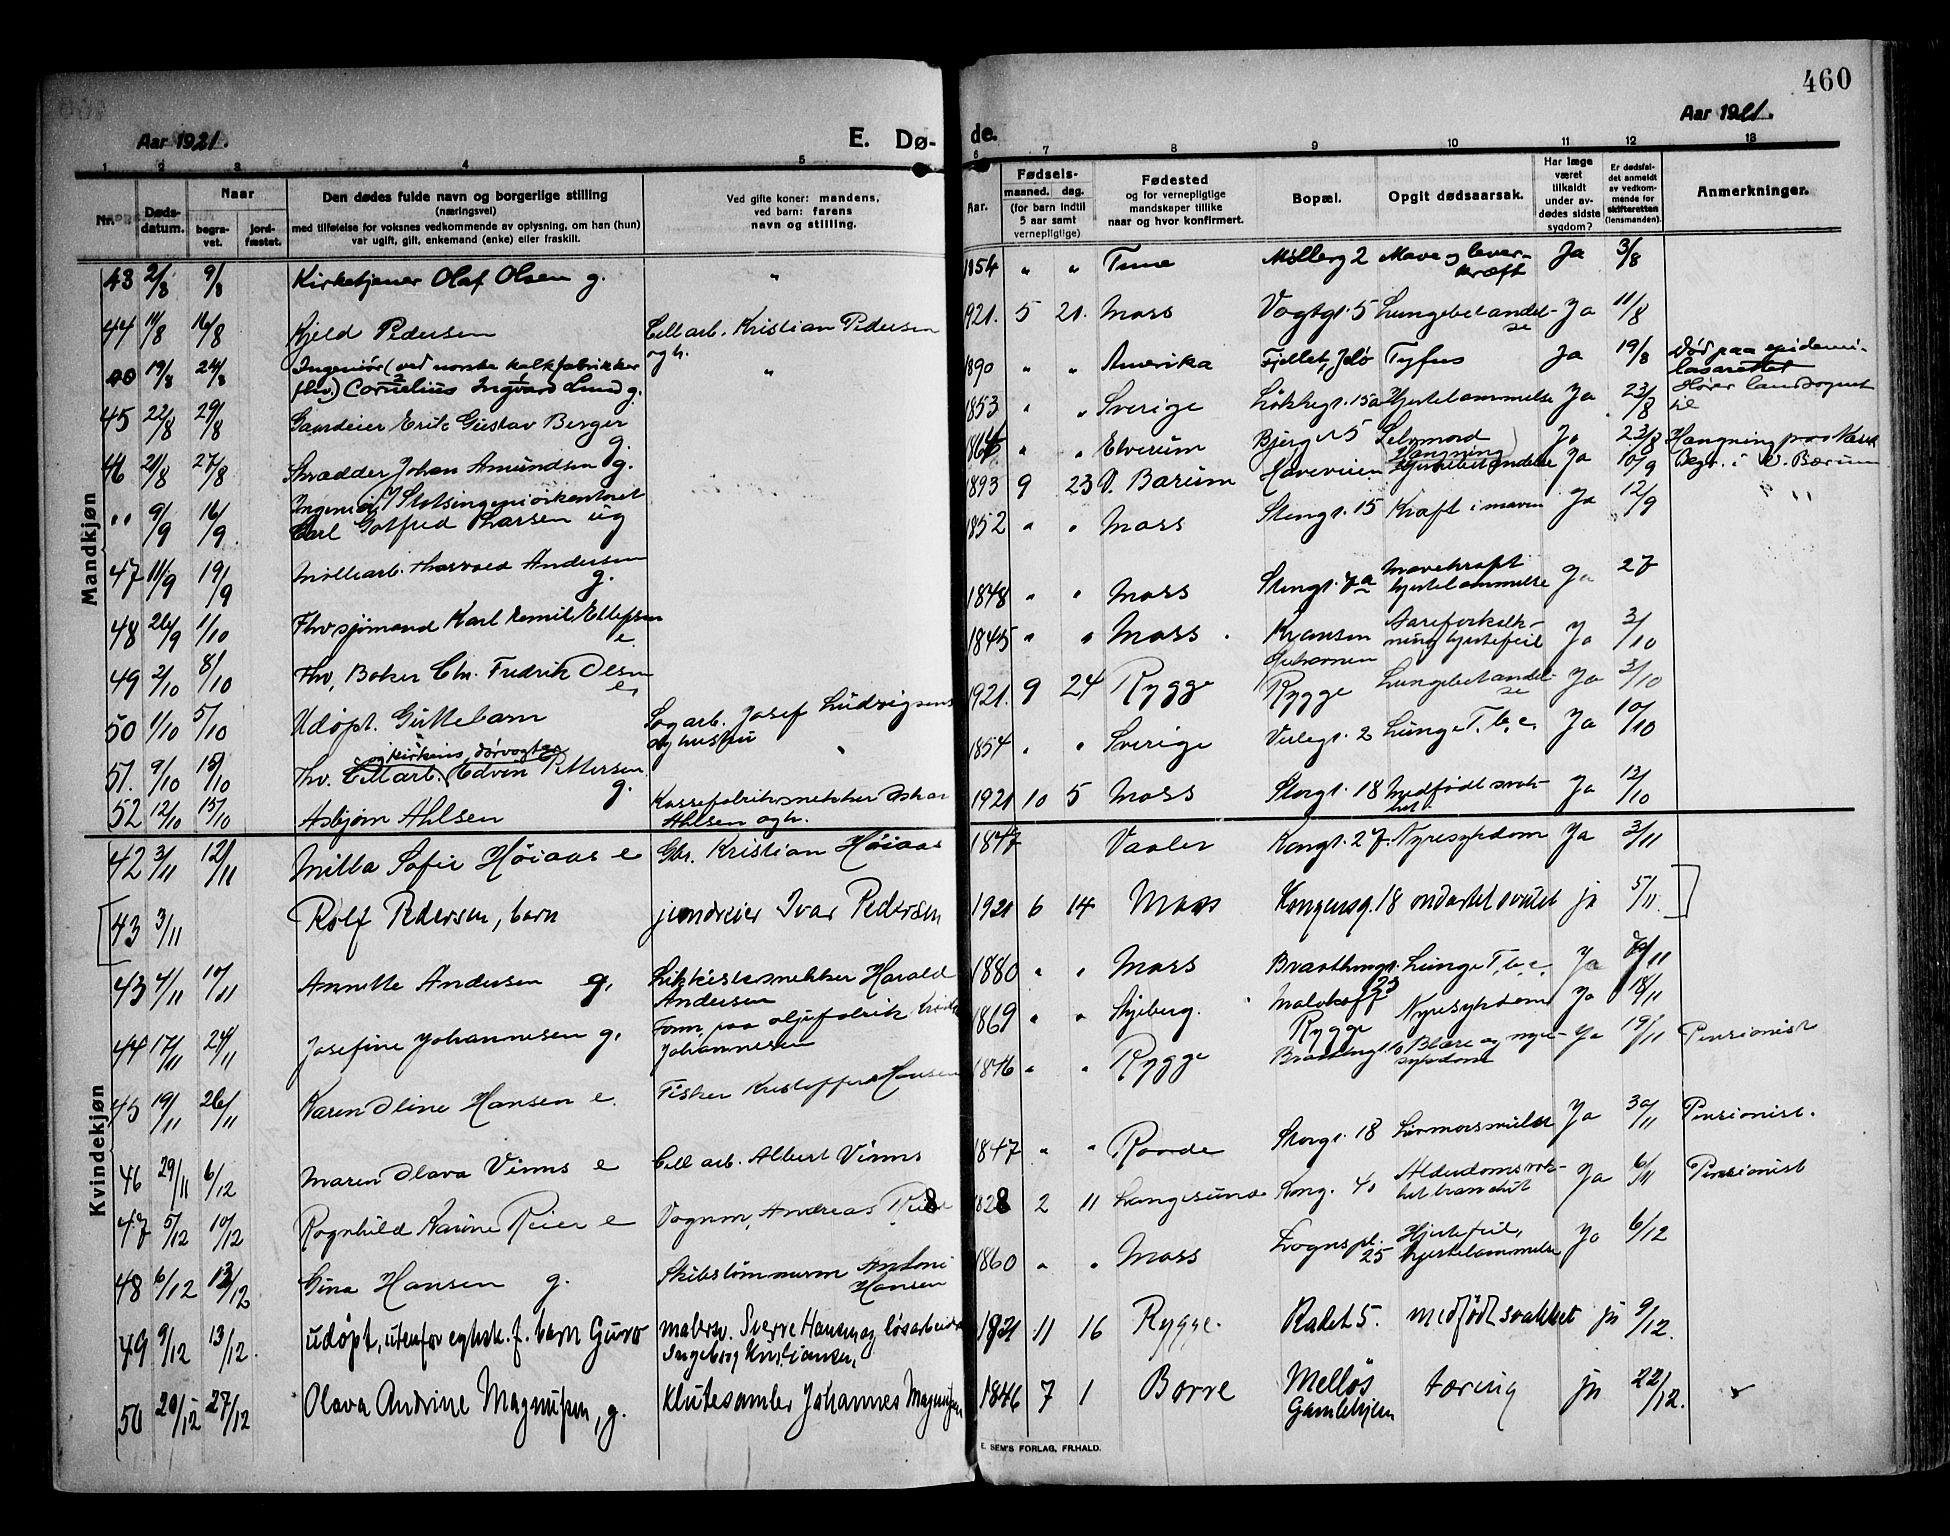 460
Aar 1921.
E. Dø-
de.
Aar 1921.
1 2 3 4 5 6 7 8 9 10 11 12 13
Nr.
Døds-
datum.
Naar
begra-
vet.
jord-
fæstet.
Den dødes fulde navn og borgerlige stilling
(næringsvei)
med tilføielse for voksnes vedkommende av oplysning, om han (hun)
var ugift, gift, enkemand (enke) eller fraskill.
Ved gifte koner: mandens,
ved barn: farens
navn og stilling.
Aar.
Fødsels-
maaned. dag.
(for barn indtil
5 aar samt
vernepligtige)
Fødested
og for vernepligtige
mandskaper tillike
naar og hvor konfirmert.
Bopæl.
Opgit dødsaarsak.
Har læge
været
tilkaldt
under av-
dødes sidste
sygdom?
Er dødsfal-
det anmeldt
av vedkom-
mende for
skifteretten
(lensmanden).
Anmerkninger.
Mandkjøn
43 2/8 9/8 Kirketjener Olaf Olsen g. " 1854 " " Tune 2 Mave og lever-
kræft Ja 3/8
44 11/8 16/8 Kjeld Pedersen Cell arb. Kristian Pedersen
og h. 1921. 5 21. Moss Vogtgt. 5 Lungebetændel-
se Ja 11/8
19/8 24/8 Ingeniør (ved norske kalkfabrikker
fhv.) Cornelius Ingvard Lund g. " 1890 " " Amerika Fjellet, Jelø Tyfus Ja 19/8 Død paa epidemi-
lasarettet
Hører landsognet
til
45 22/8 29/8 Gaardeier Erik Gustav Berger
g. 1853 " " Sverige Løkkegt. 15a Hjertelammelse Ja 23/8
46 21/8 27/8 Skrædder Johan Amundsen g. " " Elverum 5 Selvmord
Hængning Ja 23/8
" 9/9 16/9 Ingeniør
Carl Gotfred Larsen ug 1893 9 23 V. Bærum Haveveien Ja 10/9 Begr. i V. Bærum
47 11/9 19/9 Møllearb. Thorvald Andersen
g. 1852 " " Moss Stengt. 15 Kræft i maven Ja 12/9
48 26/9 1/10 Fhv sjømand Karl Emil Ellefsen
e. 1848 " " Moss Stengt. 7a Mavekræft
hjertelammelse Ja 27
49 2/10 8/10 Fhv. Baker Chr. Fredrik Olsen
e. 1845 " " Moss Kransen Aareforkalk-
ning hjertefeil Ja 3/10
50 1/10 5/10 Udøpt Guttebarn Sagarb. Josef Ludvigsen
og hustru 1921. 9 24 Rygge Rygge Lungebetændel-
se Ja 3/10
51. 9/10 15/10 Fhv. Cellarb. og kirkens dørvogter Edvin Pettersen
g. 1854 " " Sverige Verlegt. 2 Lunge T.b.c. Ja 10/10
52 12/10 15/10 Asbjørn Ahlsen Kassefabriksnekker Oskar
Ahlsen og h. 1921 10 5 Moss Storgt. 18 Medfødt svak-
het. Ja 12/10
Kvindekjøn
42 3/11 12/11 Milla Sofie Høiaas e Gbr. Kristian Høiaas 1847 Vaaler Kongt. 27. Nyresykdom Ja 3/11
43 3/11 Rolf Pedersen, barn jerndreier Ivar Pedersen 1921 6 14 Moss Kongensg. 18 ondartet svulst ja 5/11.
43 4/11 10/11 Annette Andersen g. Likkistesnekker Harald
Andersen 1880 " " Moss Braathengt.
23 Lunge T.b.c. Ja
44 17/11 24/11 Josefine Johannesen g. Form. paa oljefabrik
Johannesen 1869 " " Skjeberg. Malakoff
Rygge Nyresykdom Ja 18/11
45 19/11 26/11 Karen Oline Hansen e. Fisker Kristoffer Hansen 1846 " " Rygge Blære og nyre-
sykdom Ja 19/11 Pensionist
46 29/11 6/12 Maren Olava Vinns e Cell arb. Albert Vinns 1847 " " Raade Storgt. 18 Ja 30/11 Pensionist.
47 5/12 10/12 Ragnhild Karine Reier e Vognm. Andreas Reier 1828 2 11 Langesund Kong. 40 Alderdomssvak-
het Ja 6/11 Pensionist
48 6/12 13/12 Gina Hansen g. Skibstømmerm Antoni
Hansen 1860 " " Moss Sognspl.
25 Hjertefeil,
hjertelammelse Ja 6/12
49 9/12 13/12. udøpt, utenfor egtsk. f. barn Guro malersv. Sverre Hansen og løsarbeider
Ingeborg Kristiansen, 1921 11 16 Rygge. Rådet 5. medfødt svakhet ja 9/12.
50 20/12 27/12 Olava Andrine Magnusen, g. Klutesamler Johannes Magnusen 1846 7 1 Borre Melløs
Gamlehjem tæring ja 22/12.
E. SEM'S FORLAG, FR.HALD.